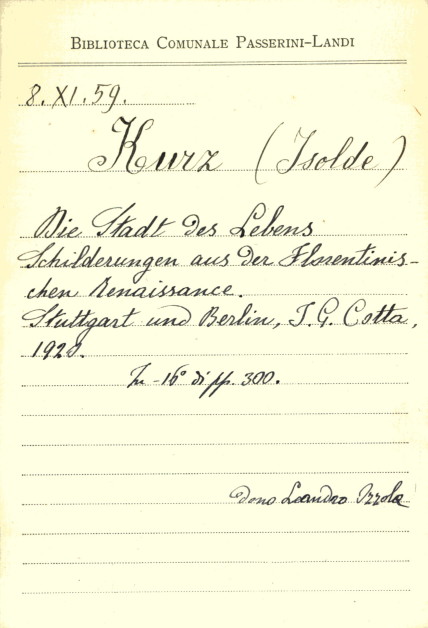 BIBLIOTECA COMUNALE PASSERINI-LANDI
8. XI. 59.
Kurz (Isolde)
Die Stadt des Lebens
Schilderungen aus der Florentinis-
chen Renaissance.
Stuttgart und Berlin, J. G. Cotta,
1920.
In-16° di pp. 300.
Dono Leandro Ozzola